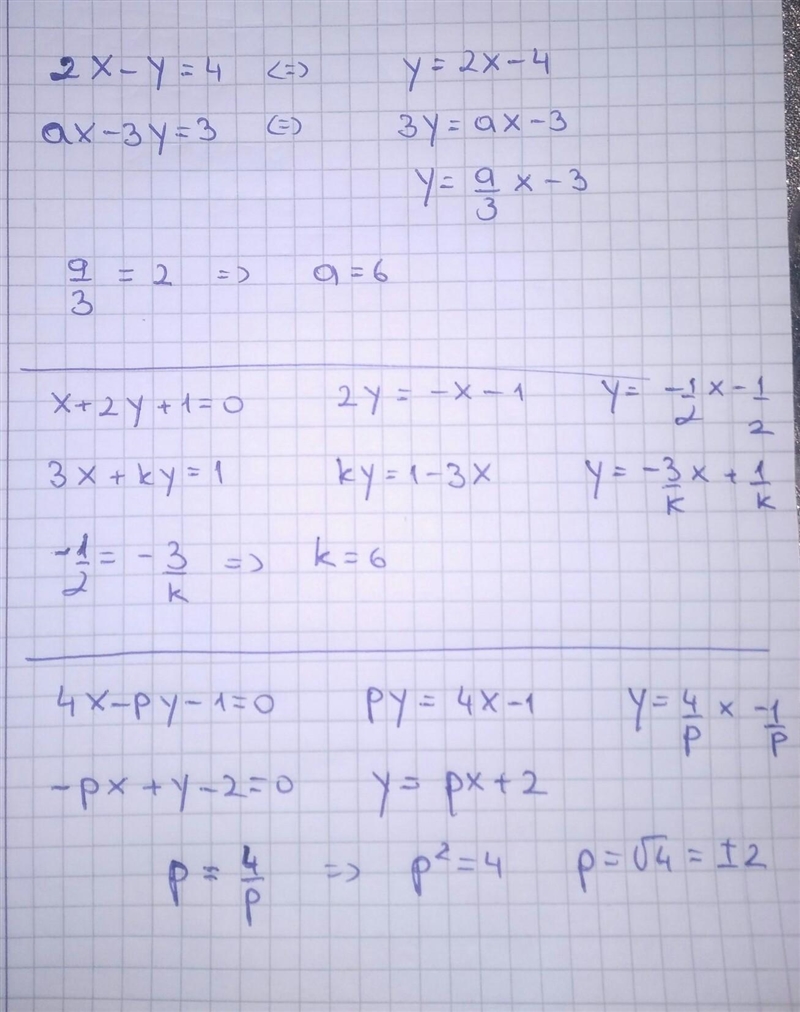 2x-y=4 <=> y=2x-4
ax-3y=3 <=> 3y=ax-3
y=a/3 x-3
a/3=2 => a=6
x+2y+1=0 2y=-x-1 y=-1/2 x-1/2
3x+ky=1 ky=1-3x y=-3/k x+1/k
-1/2=-3/k => k=6
4x-py-1=0 py=4x-1 y=4/p x -1/p
-px+y-2=0 y=px+2
p=4/p => p²=4 p=√4=±2